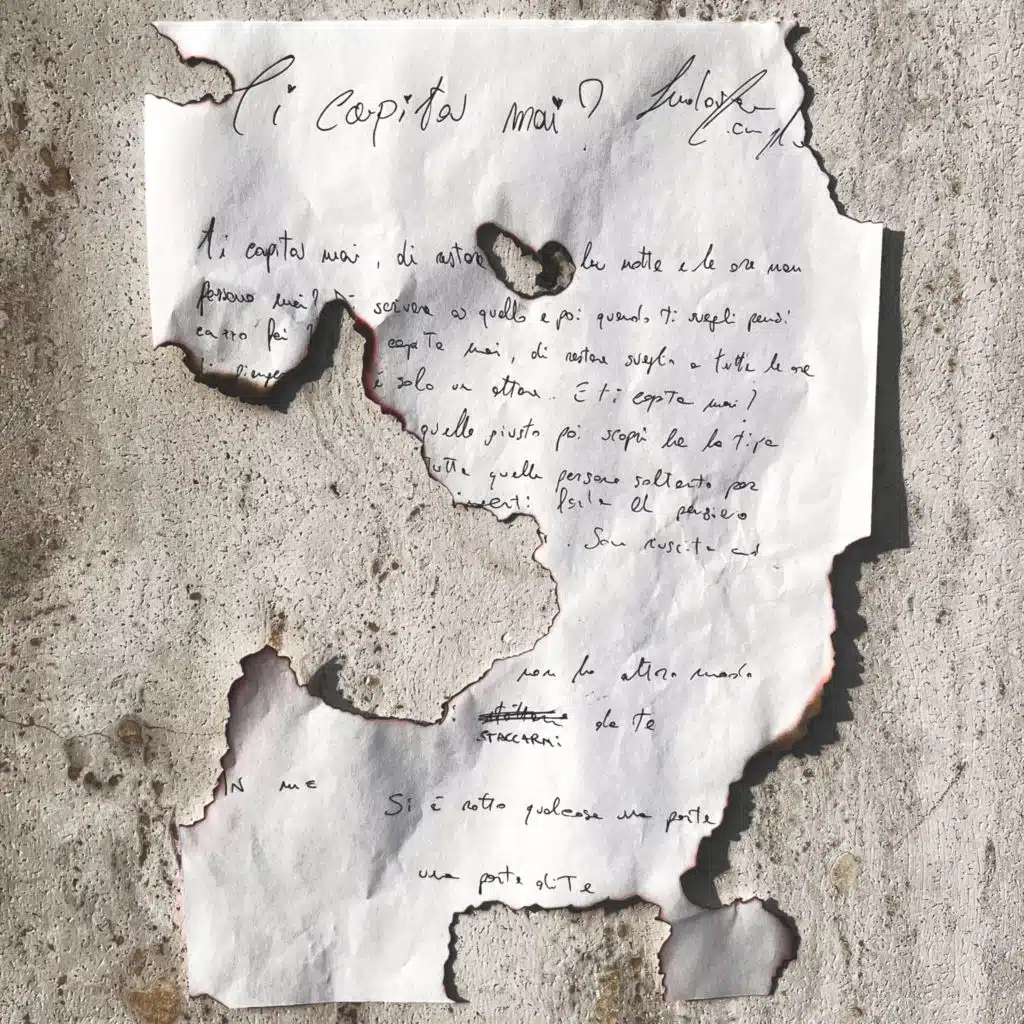 Ti capita mai?
ti capita mai, di restare la notte e le ore non
passano mai? Di scrivere a quello e poi quando ti svegli pensi
cazzo fai? capita mai, di restare sveglia a tutte le ore
è solo un attore. E ti capita mai?
quello giusto poi scopri che la tipa
tutte quelle persone soltanto per
il pensiero
. Son riuscita ad
non ho altro modo
STACCARMI da te
IN ME
Si è rotto qualcosa una parte
una parte di Te